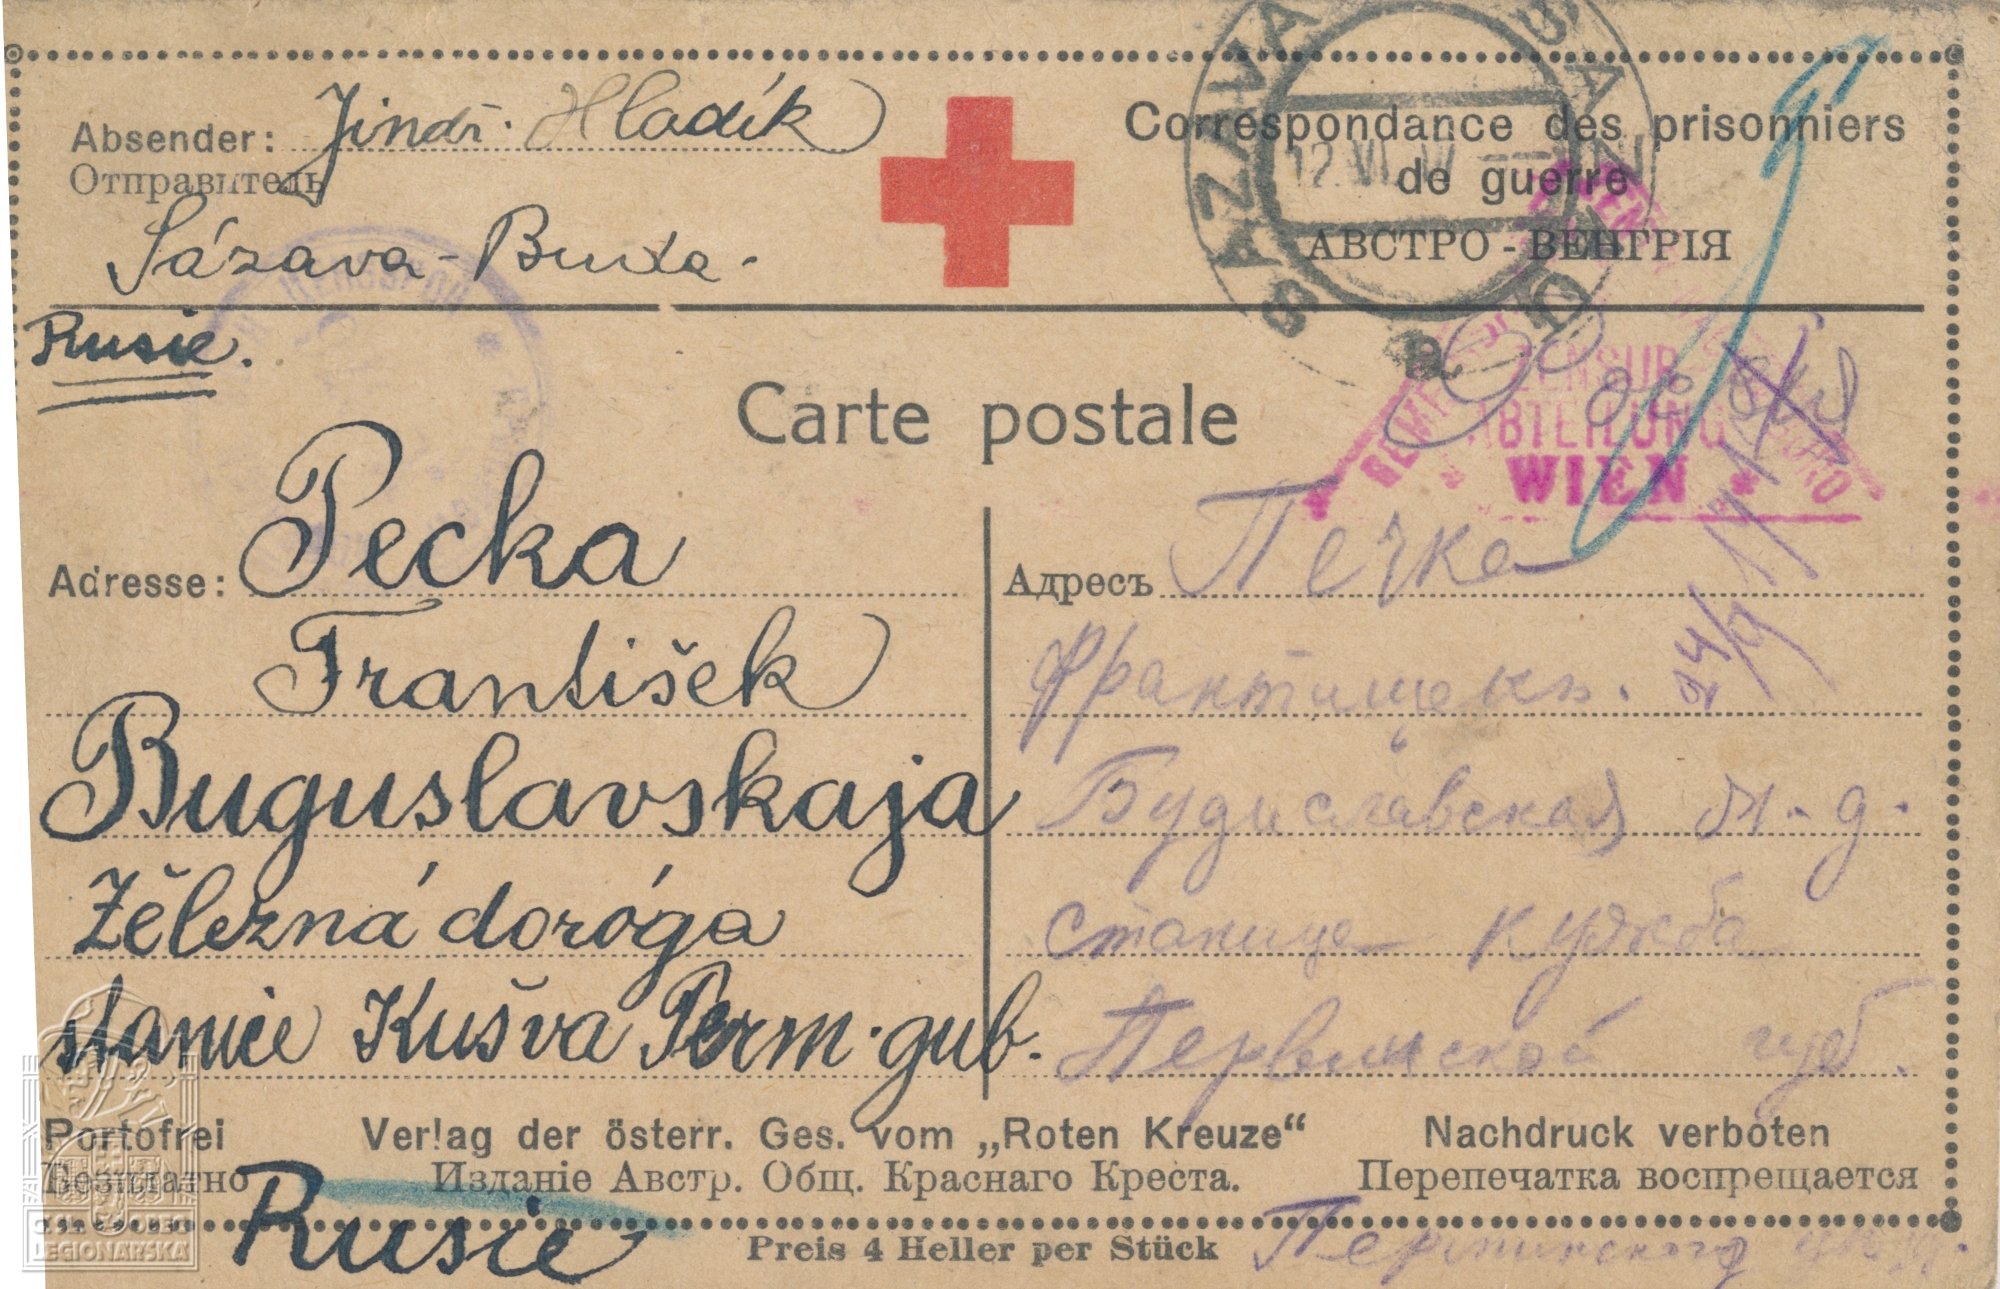 Absender: Jindř. Hladík
Отправитель
Sázava-Buda.
Correspondance des prisonniers
de guerre
АВСТРО-ВЕНГРІЯ
SAZAVA BUDA
12.VI
Rusie.
ZENSUR
ABTEILUNG
WIEN
Carte postale
Adresse: Pecka
František
Buguslavskaja
Zělezná doróga
stanice Kušva Perm. gub.
Адресъ Печка
Франтишекъ.
Будиславская
станице
губ.
24/9
Portofrei
Безплатно
Verlag der österr. Ges. vom „Roten Kreuze“
Изданіе Австр. Общ. Краснаго Креста.
Nachdruck verboten
Перепечатка воспрещается
Rusie
Preis 4 Heller per Stück
LEGIONÁŘSKÁ